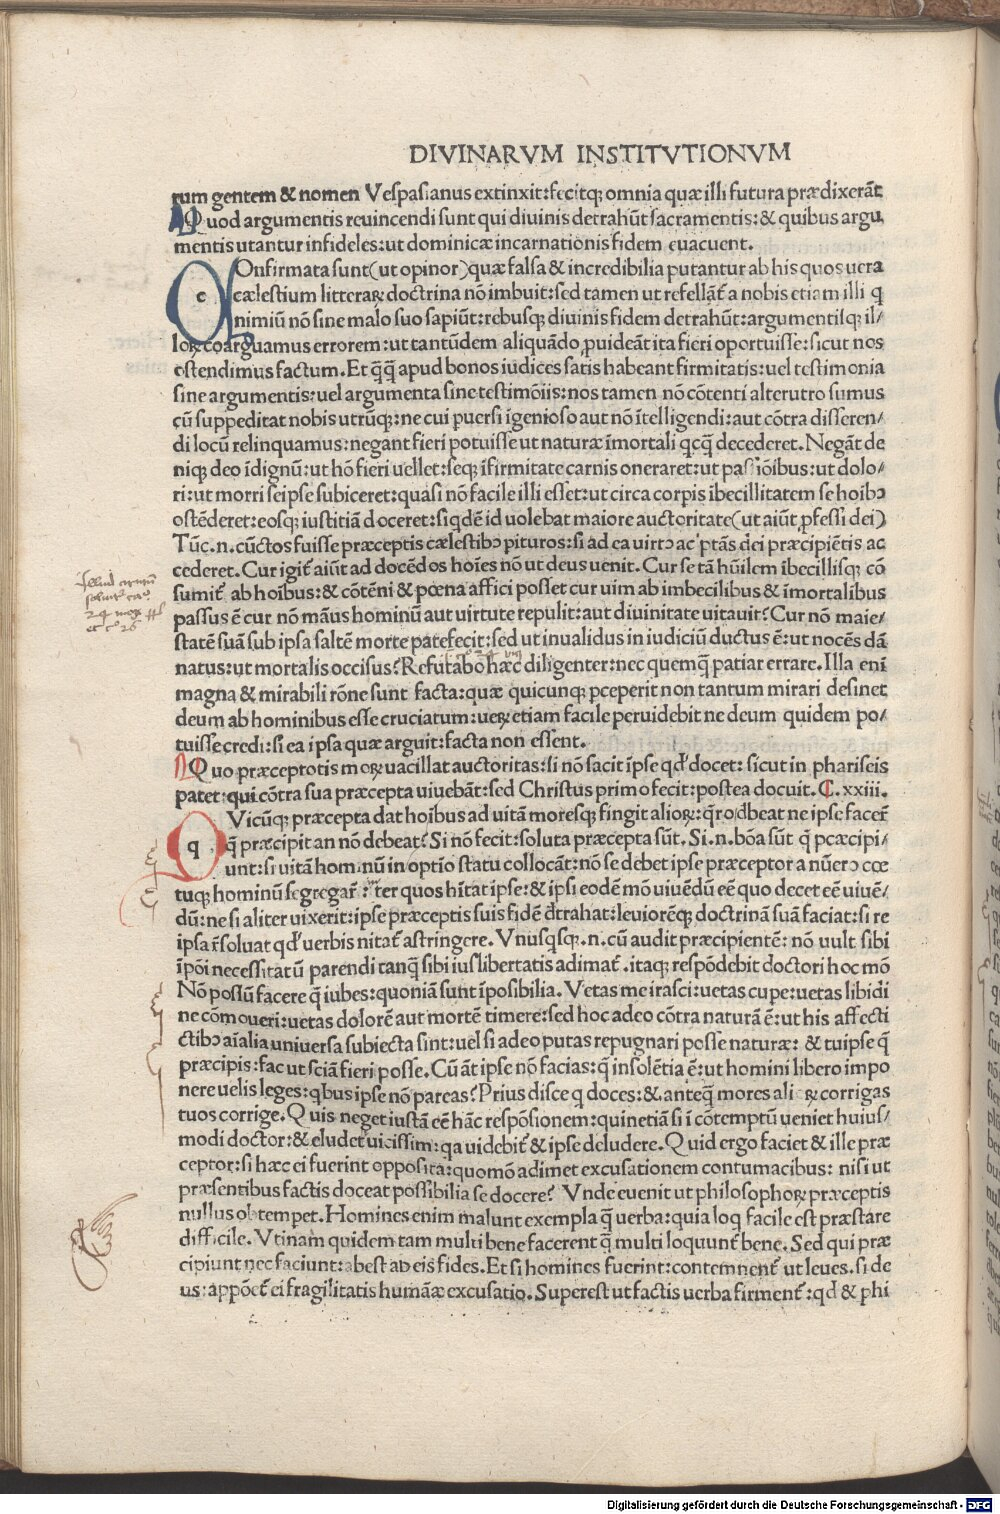 DIVINARVM INSTITVTIONVM
rum gentem & nomen Vespasianus extinxit:fecitq; omnia quæ illi futura prædixerãt
Quod argumentis reuincendi sunt qui diuinis detrahũt sacramentis:& quibus argu
mentis utantur infideles:ut dominicæ incarnationis fidem euacuent.
cOnfirmata sunt(ut opinor)quæ falsa & incredibilia putantur ab his quos uera
cælestium litteraꝝ doctrina nõ imbuit:sed tamen ut refellãt̃ a nobis etiam illi q
nimiũ nõ sine malo suo sapiũt:rebusq; diuinis fidem detrahũt:argumentisq; il/
loꝝ coarguamus errorem:ut tantũdem aliquãdo ꝓuideãt ita fieri oportuisse:sicut nos
ostendimus factum. Et q̃q̃ apud bonos iudices satis habeant firmitatis:uel testimonia
sine argumentis:uel argumenta sine testimõiis:nos tamen nõ cõtenti alterutro sumus
cũ suppeditat nobis utrũq;:ne cui ꝑuersi ĩgenioso aut nõ ĩtelligendi:aut cõtra disseren/
di locũ relinquamus:negant fieri potuisse ut naturæ ĩmortali qcq̃ decederet. Negãt de
niq; deo ĩdignũ:ut hõ fieri uellet:seq; ĩfirmitate carnis oneraret:ut passiõibus:ut dolo/
ri:ut morri seipse subiceret:quasi nõ facile illi esset:ut circa corpis ĩbecillitatem se hoibꝫ
ostẽderet:eosq; iustitiã doceret:siqdẽ id uolebat maiore auctoritate(ut aiũt ꝓfessi dei)
Tũc.n.cũctos fuisse præceptis cælestibꝫ pituros:si ad ea uirtꝰ ac ptãs dei præcipiẽtis ac
cederet. Cur igit̃ aiũt ad docẽdos hoĩes nõ ut deus uenit. Cur se tã hũilem ĩbecillisq; cõ
sumit̃ ab hoĩbus:& cõtẽni & pœna affici posset cur uim ab imbecilibus & ĩmortalibus
passus ẽ cur nõ mãus hominũ aut uirtute repulit:aut diuinitate uitauit? Cur nõ maie/
statẽ suã sub ipsa saltẽ morte patefecit:sed ut inualidus in iudiciũ ductus ẽ:ut nocẽs dã
natus:ut mortalis occisus? Refutabo hæc diligenter:nec quemq̃ patiar errare. Illa eni
magna & mirabili rõne sunt facta:quæ quicunq; pceperit non tantum mirari desinet
deum ab hominibus esse cruciatum:ueꝝ etiam facile peruidebit ne deum quidem po/
tuisse credi:si ea ipsa quæ arguit:facta non essent.
Quo præceptotis moꝝ uacillat auctoritas:si nõ facit ipse qd docet: sicut in phariseis
patet:qui cõtra sua præcepta uiuebãt:sed Christus primo fecit:postea docuit. C.xxiii.
qVicũq; præcepta dat hoibus ad uitã moresq; fingit alioꝝ:q̃ro dbeat ne ipse facer̃
q̃ præcipit an nõ debeat? Si nõ fecit:soluta præcepta sũt. Si.n.bõa sũt q̃ pcæcipi/
unt:si uitã hominũ in optio statu collocãt:nõ se debet ipse præceptor a nũero cœ
tuq; hominũ segregar̃ ĩter quos hĩtat ipse:& ipsi eodẽ mõ uiuẽdũ eẽ quo decet eẽ uiuẽ/
dũ:ne si aliter uixerit:ipse præceptis suis fidẽ dtrahat:leuiorẽq; doctrinã suã faciat:si re
ipsa r̃soluat qd uerbis nitat̃ astringere. Vnusqsq;.n.cũ audit præcipientẽ: nõ uult sibi
ĩpõi necessitatũ parendi tanq̃ sibi ius libertatis adimat̃. itaq; respõdebit doctori hoc mõ
Nõ possũ facere q̃ iubes:quoniã sunt ĩposibilia. Vetas me irasci:uetas cupe:uetas libidi
ne cõmoueri:uetas dolorẽ aut mortẽ timere:sed hoc adeo cõtra naturã ẽ:ut his affecti
ctibꝫ aĩalia uniuersa subiecta sint:uel si adeo putas repugnari posse naturæ: & tuipse q̃
præcipis:fac ut sciã fieri posse. Cũ ãt ipse nõ facias:q̃ insolẽtia ẽ:ut homini libero impo
nere uelis leges:qbus ipse nõ pareas? Prius disce q doces:& anteq̃ mores alioꝝ corrigas
tuos corrige. Quis neget iustã eẽ hãc respõsionem:quinetiã si ĩ cõtemptũ ueniet huius/
modi doctor:& eludet̃ uicissim:qa uidebit̃ & ipse deludere. Quid ergo faciet & ille præ
ceptor:si hæc ei fuerint opposita:quomõ adimet excusationem contumacibus: nisi ut
præsentibus factis doceat possibilia se docere? Vnde euenit ut philosophoꝝ præceptis
nullus obtempet. Homines enim malunt exempla q̃ uerba:quia loq facile est præstare
difficile. Vtinam quidem tam multi bene facerent q̃ multi loquunt̃ bene. Sed qui præ
cipiunt nec faciunt:abest ab eis fides. Et si homines fuerint:contemnent̃ ut leues. si de
us:appõet̃ ei fragilitatis humãæ excusatio. Superest ut factis uerba firment̃:qd & phi
Digitalisierung gefördert durch die Deutsche Forschungsgemeinschaft - DFG